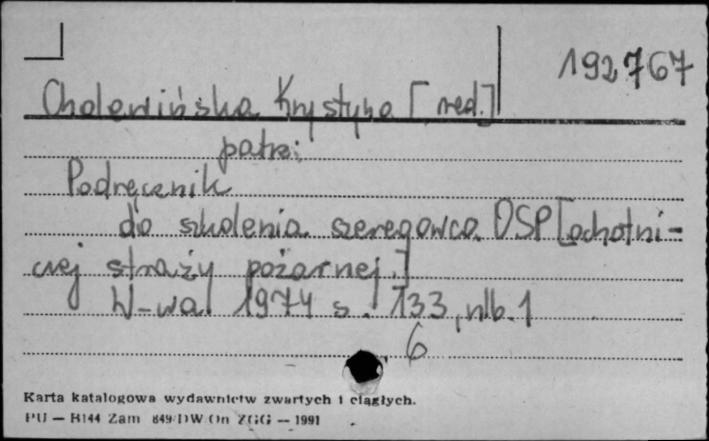 192767
Cholewińska Krystyna [red.]
patrz:
Podręcznik
do szkolenia szeregowca OSP [ochotni-
czej straży pożarnej.]
W-wa 1974 s. 133, nlb. 1
6
Karta katalogowa wydawnictw zwartych i ciągłych.
PU — H144 Zam 849/DW/On ZGG — 1991